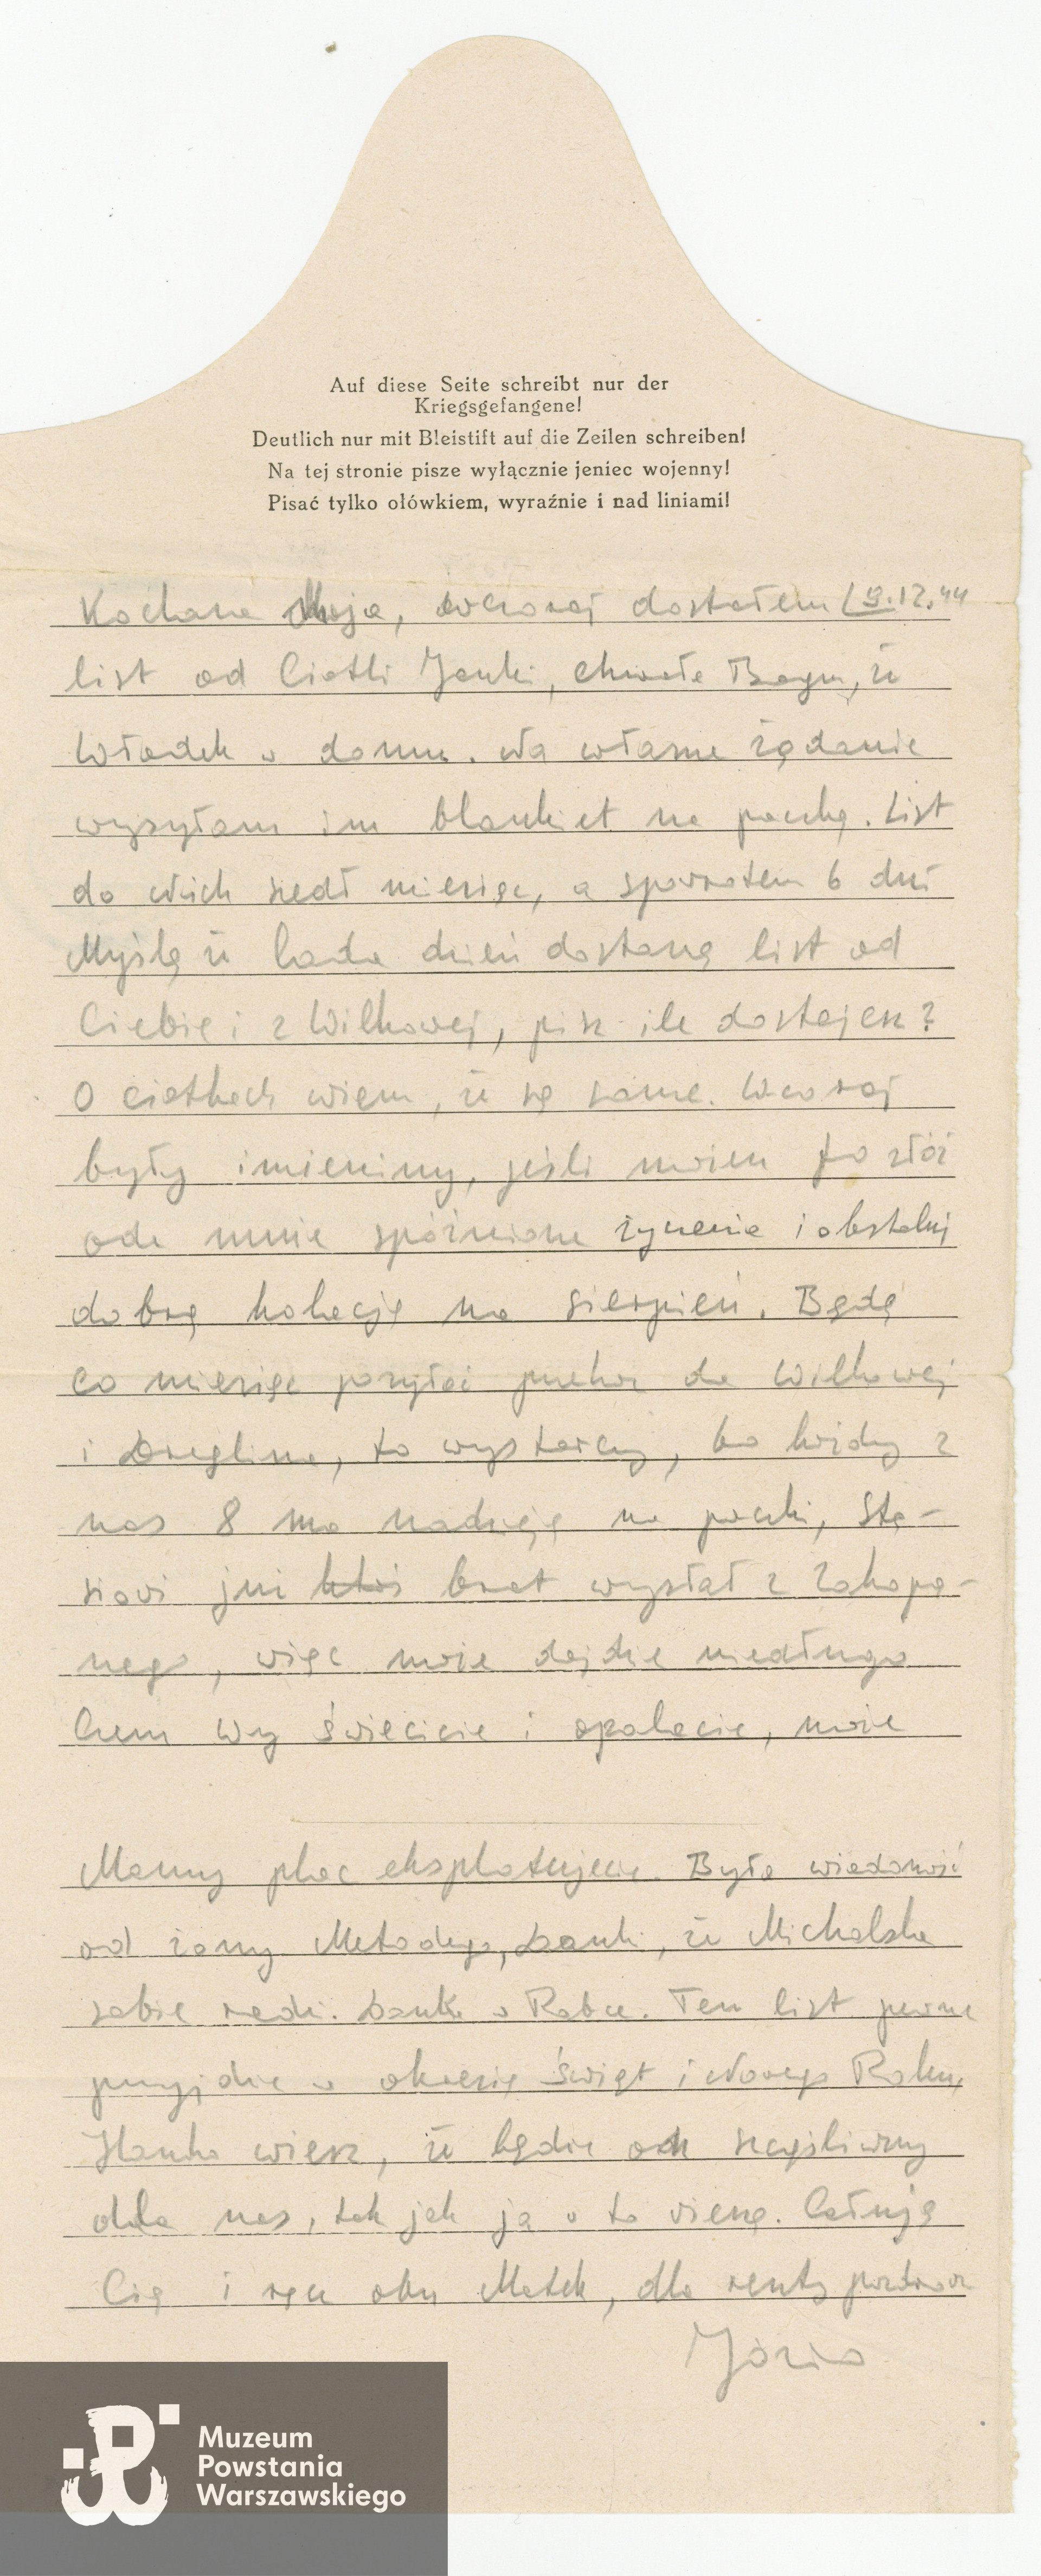 Auf diese Seite schreibt nur der
Kriegsgefangene!
Deutlich nur mit Bleistift auf die Zeilen schreiben!
Na tej stronie pisze wyłącznie jeniec wojenny!
Pisać tylko ołówkiem, wyraźnie i nad liniami!
Kochana Moja, wczoraj dostałem 19.12.44
list od Cioтki Janki, chwała Bogu, że
Władek w domu. Na własne żądanie
wysyłam im blankiet na paczkę. List
do Nich szedł miesiąc, a spowrotem 6 dni
Myślę że lada dzień dostanę list od
Ciebie i z Wilkowej, pisz ile dostajesz?
O ciotkach wiem, że są same. Wczoraj
były imieniny, jeśli możesz to złóż
ode mnie spóźnione życzenia i obstaluj
dobrą kolację na sierpień. Będę
co miesiąc posyłać do Wilkowej
i to wystarczy, bo każdy z
nas 8 ma nadzieję na paczki, Sta-
siowi już ktoś brat wysłał z Zakopa-
nego, więc może dojdzie niedługo
Czem Wy świecicie i opalacie, może
Mamy plac eksploatujecie. Była wiadomość
od żony Metodego, Danki, że Michalska
sobie radzi. Danka w Rabce. Ten list pewne
przyjdzie w okresie świąt i Nowego Roku,
Hanka wiesz, że będzie on szczęśliwy
dla nas, tak jak ja w to wierzę. Całuję
Cię i ręce obu Matek, dla reszty pozdrow
Józio
Muzeum
Powstania
Warszawskiego